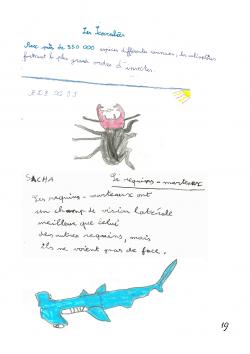 Les Scarabées
Avec près de 350 000 espèces différentes connues, les coléoptères
forment le plus grand ordre d'insectes.
SACHA
Le requins-marteaux
Les requins-marteaux ont
un champ de vision latérale
meilleur que celui
des autres requins, mais
ils ne voient pas de face.
19